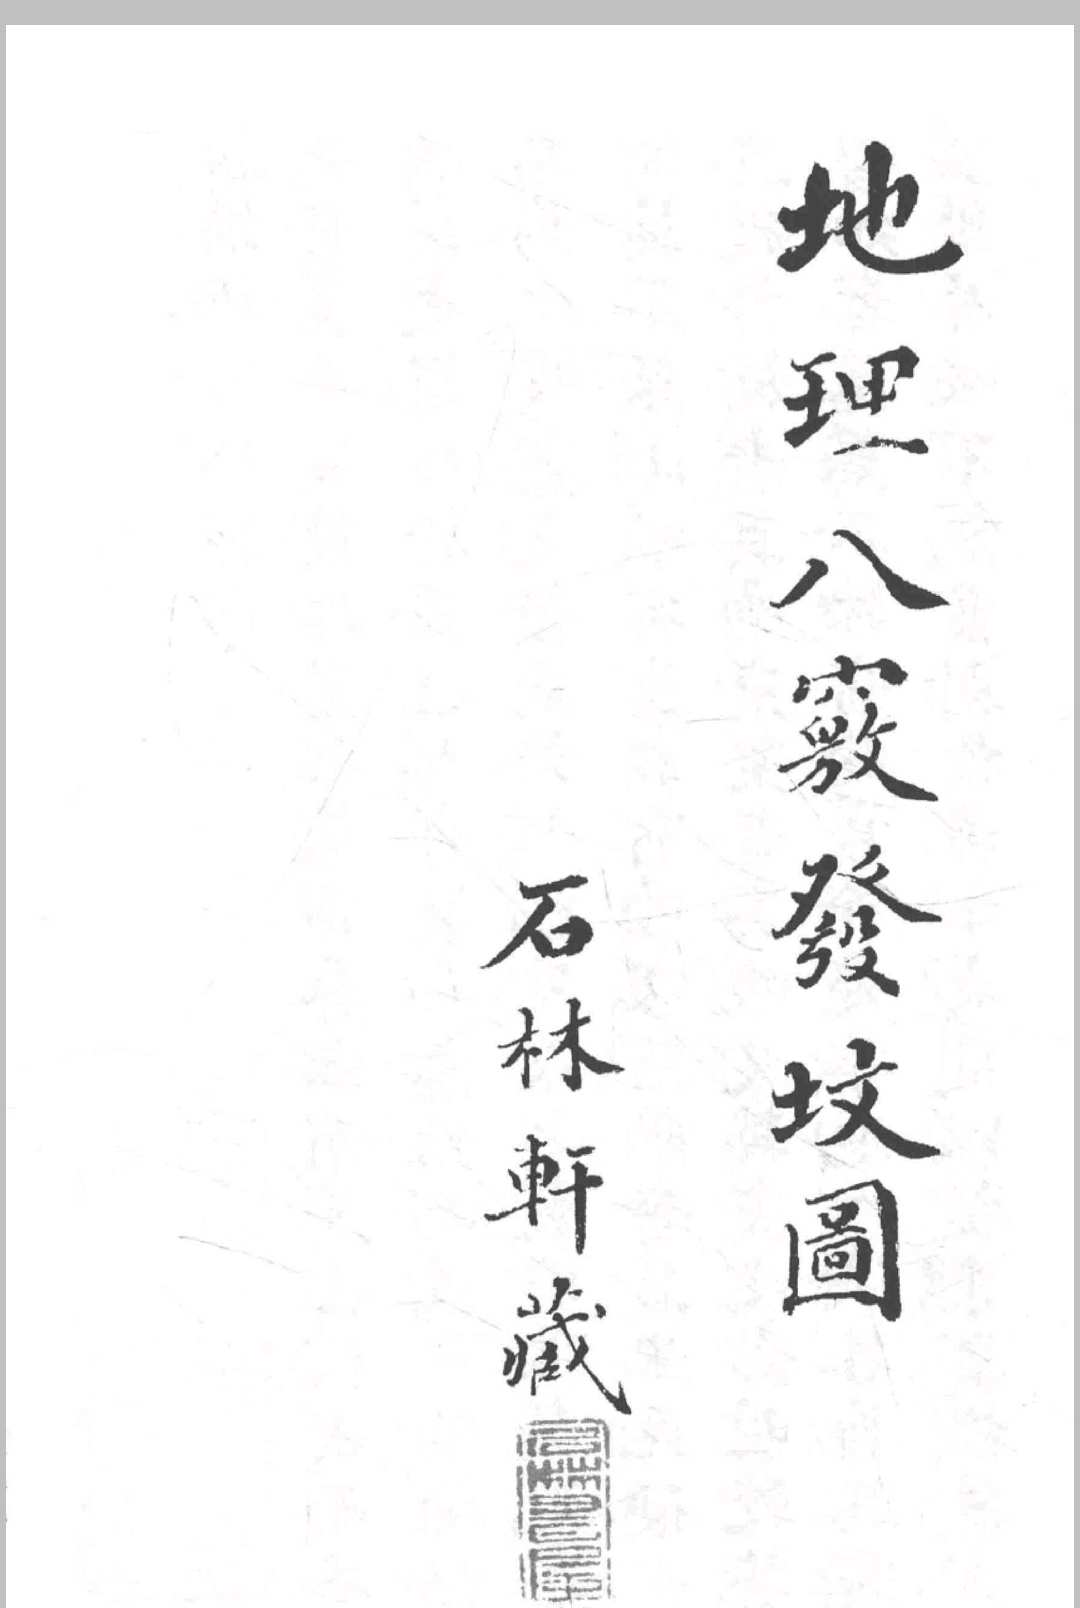 地理八竅發坟圖
石林軒藏